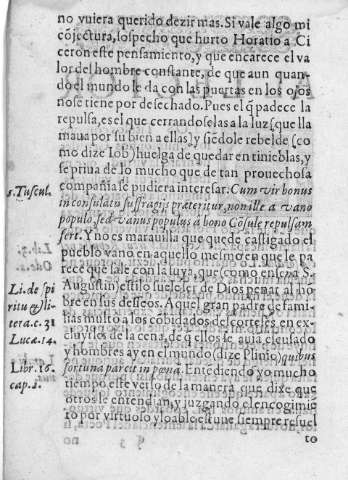 no vuiera querido dezir mas. Si vale algo mi
cõjectura, sospecho que hurto Horatio a Ci
ceron este pensamiento, y que encarece el va
lor del hombre constante, de que aun quan-
do el mundo le da con las puertas en los ojos
no se tiene por desechado. Pues el q̃ padece la
repulsa, es el que cerrandoselas a la luz (que lla
maua por su bien a ellas) y siẽdole rebelde (co
mo dize Iob) huelga de quedar en tinieblas, y
se priua de lo mucho que de tan prouechosa
5. Tuscul.
compañia se pudiera interesar. Cum vir bonus
in consulatu suffragijs præteritur, non ille a vano
populo, sed vanus populus á bono Cõsule repulsam
fert. Y no es marauilla que quede castigado el
pueblo vano en aquello mesmo en que le pa
rece que sale con la suya, que (como enseña S.
Li. de spi
ritu & li
tera. c. 31
Augustin) estilo suele ser de Dios penar al hõ
bre en sus desseos. Aquel gran padre de fami-
lias multò a los cõbidados descorteses en ex-
Luca. 14.
cluyrles de la cena, de q̃ ellos se auiã escusado
y hombres ay en el mundo (dize Plinio) quibus
Libr. 16.
cap. 1.
fortuna parcit in pœnã. Entediendo yo mucho
tiempo este verso de la manera que dixe que
otros le entendian, y juzgando el encogimiẽ
to por virtuoso y loable, estuue siempre resuel
to